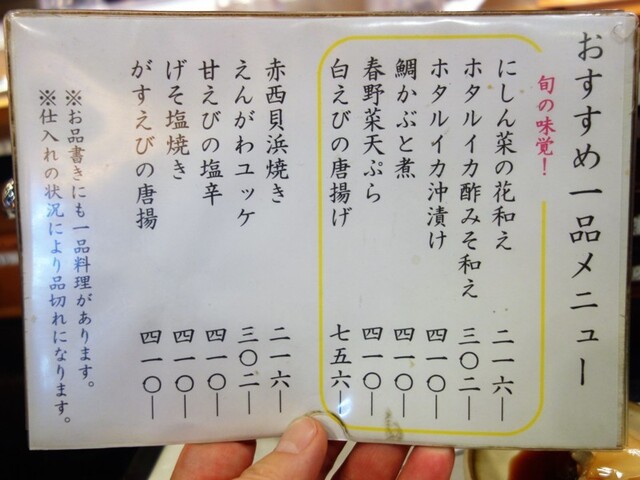 おすすめ一品メニュー
旬の味覚!
にしん菜の花和え 二一六―
ホタルイカ酢みそ和え 三〇二―
ホタルイカ沖漬け 四一〇―
鯛かぶと煮 四一〇―
春野菜天ぷら 四一〇―
白えびの唐揚げ 七五六―
赤西貝浜焼き 二一六―
えんがわユッケ 三〇二―
甘えびの塩辛 四一〇―
げそ塩焼き 四一〇―
がすえびの唐揚 四一〇―
※お品書きにも一品料理があります。
※仕入れの状況により品切れになります。